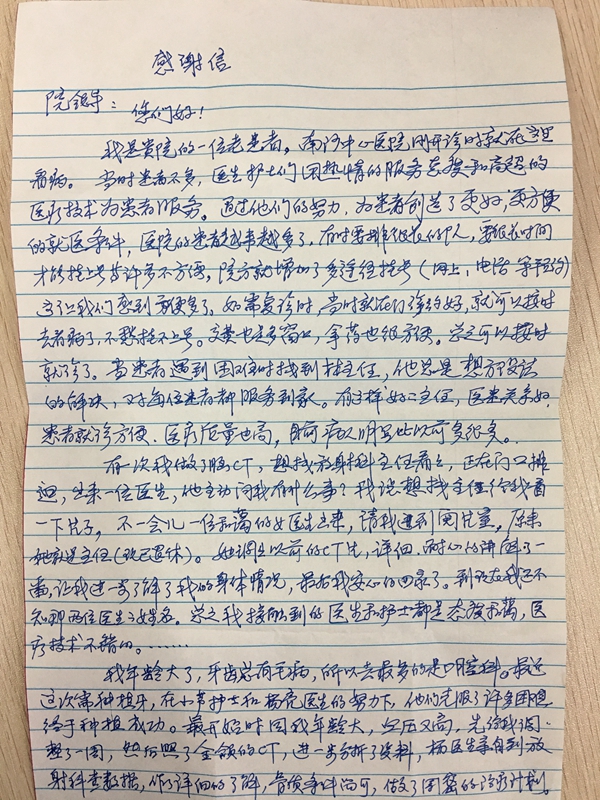 感谢信
院领导：
您们好！
我是贵院的一位老患者。南河中心医院刚开诊时就在这里
看病。当时患者不多，医生护士们用热情的服务态度和高超的
医疗技术为患者服务。通过他们的努力，为患者创造了更好，更方便
的就医条件，医院的患者越来越多了，有时要排很长的人，要很长时间
才能挂上号许多不方便，院方就增加了多途径挂号（网上，电话等预约）
这让我们感到方便多了。如需复诊时，当时就在门诊约好，就可以按时
去看病了，不愁挂不上号。交费也是多窗口，拿药也很方便。总之可以按时
就诊了。当患者遇到困难时找到林主任，他总是想方设法
的解决，对每位患者都服务到家。有这样好的主任，医患关系好，
患者就诊方便、医疗质量也高，目前病人明显比以前多很多。
有一次我做了脑CT，想找放射科主任看看，正在门口徘
徊，出来一位医生，他主动问我有什么事？我说想找主任给我看
一下片子，不一会儿一位和蔼的女医生出来，请我进到阅片室，原来
她就是主任（现已退休）。她调出以前的CT片，详细、耐心的讲解了一
番，让我进一步了解了我的身体情况，最后我安心的回家了。到现在我还不
知那两位医生的姓名。总之我接触到的医生和护士都是态度和蔼，医
疗技术不错的。……
我年龄大了，牙齿总有毛病，所以去最多的是口腔科。最近
这次需种植牙，在小芦护士和杨亮医生的努力下，他们克服了许多困难
终于种植成功。最开始时因我年龄大，血压又高，先给我调
整了一周，然后照了全颌的CT，进一步分析了资料，杨医生亲自到放
射科查数据，作了详细的了解，骨质条件尚可，做了周密的治疗计划。